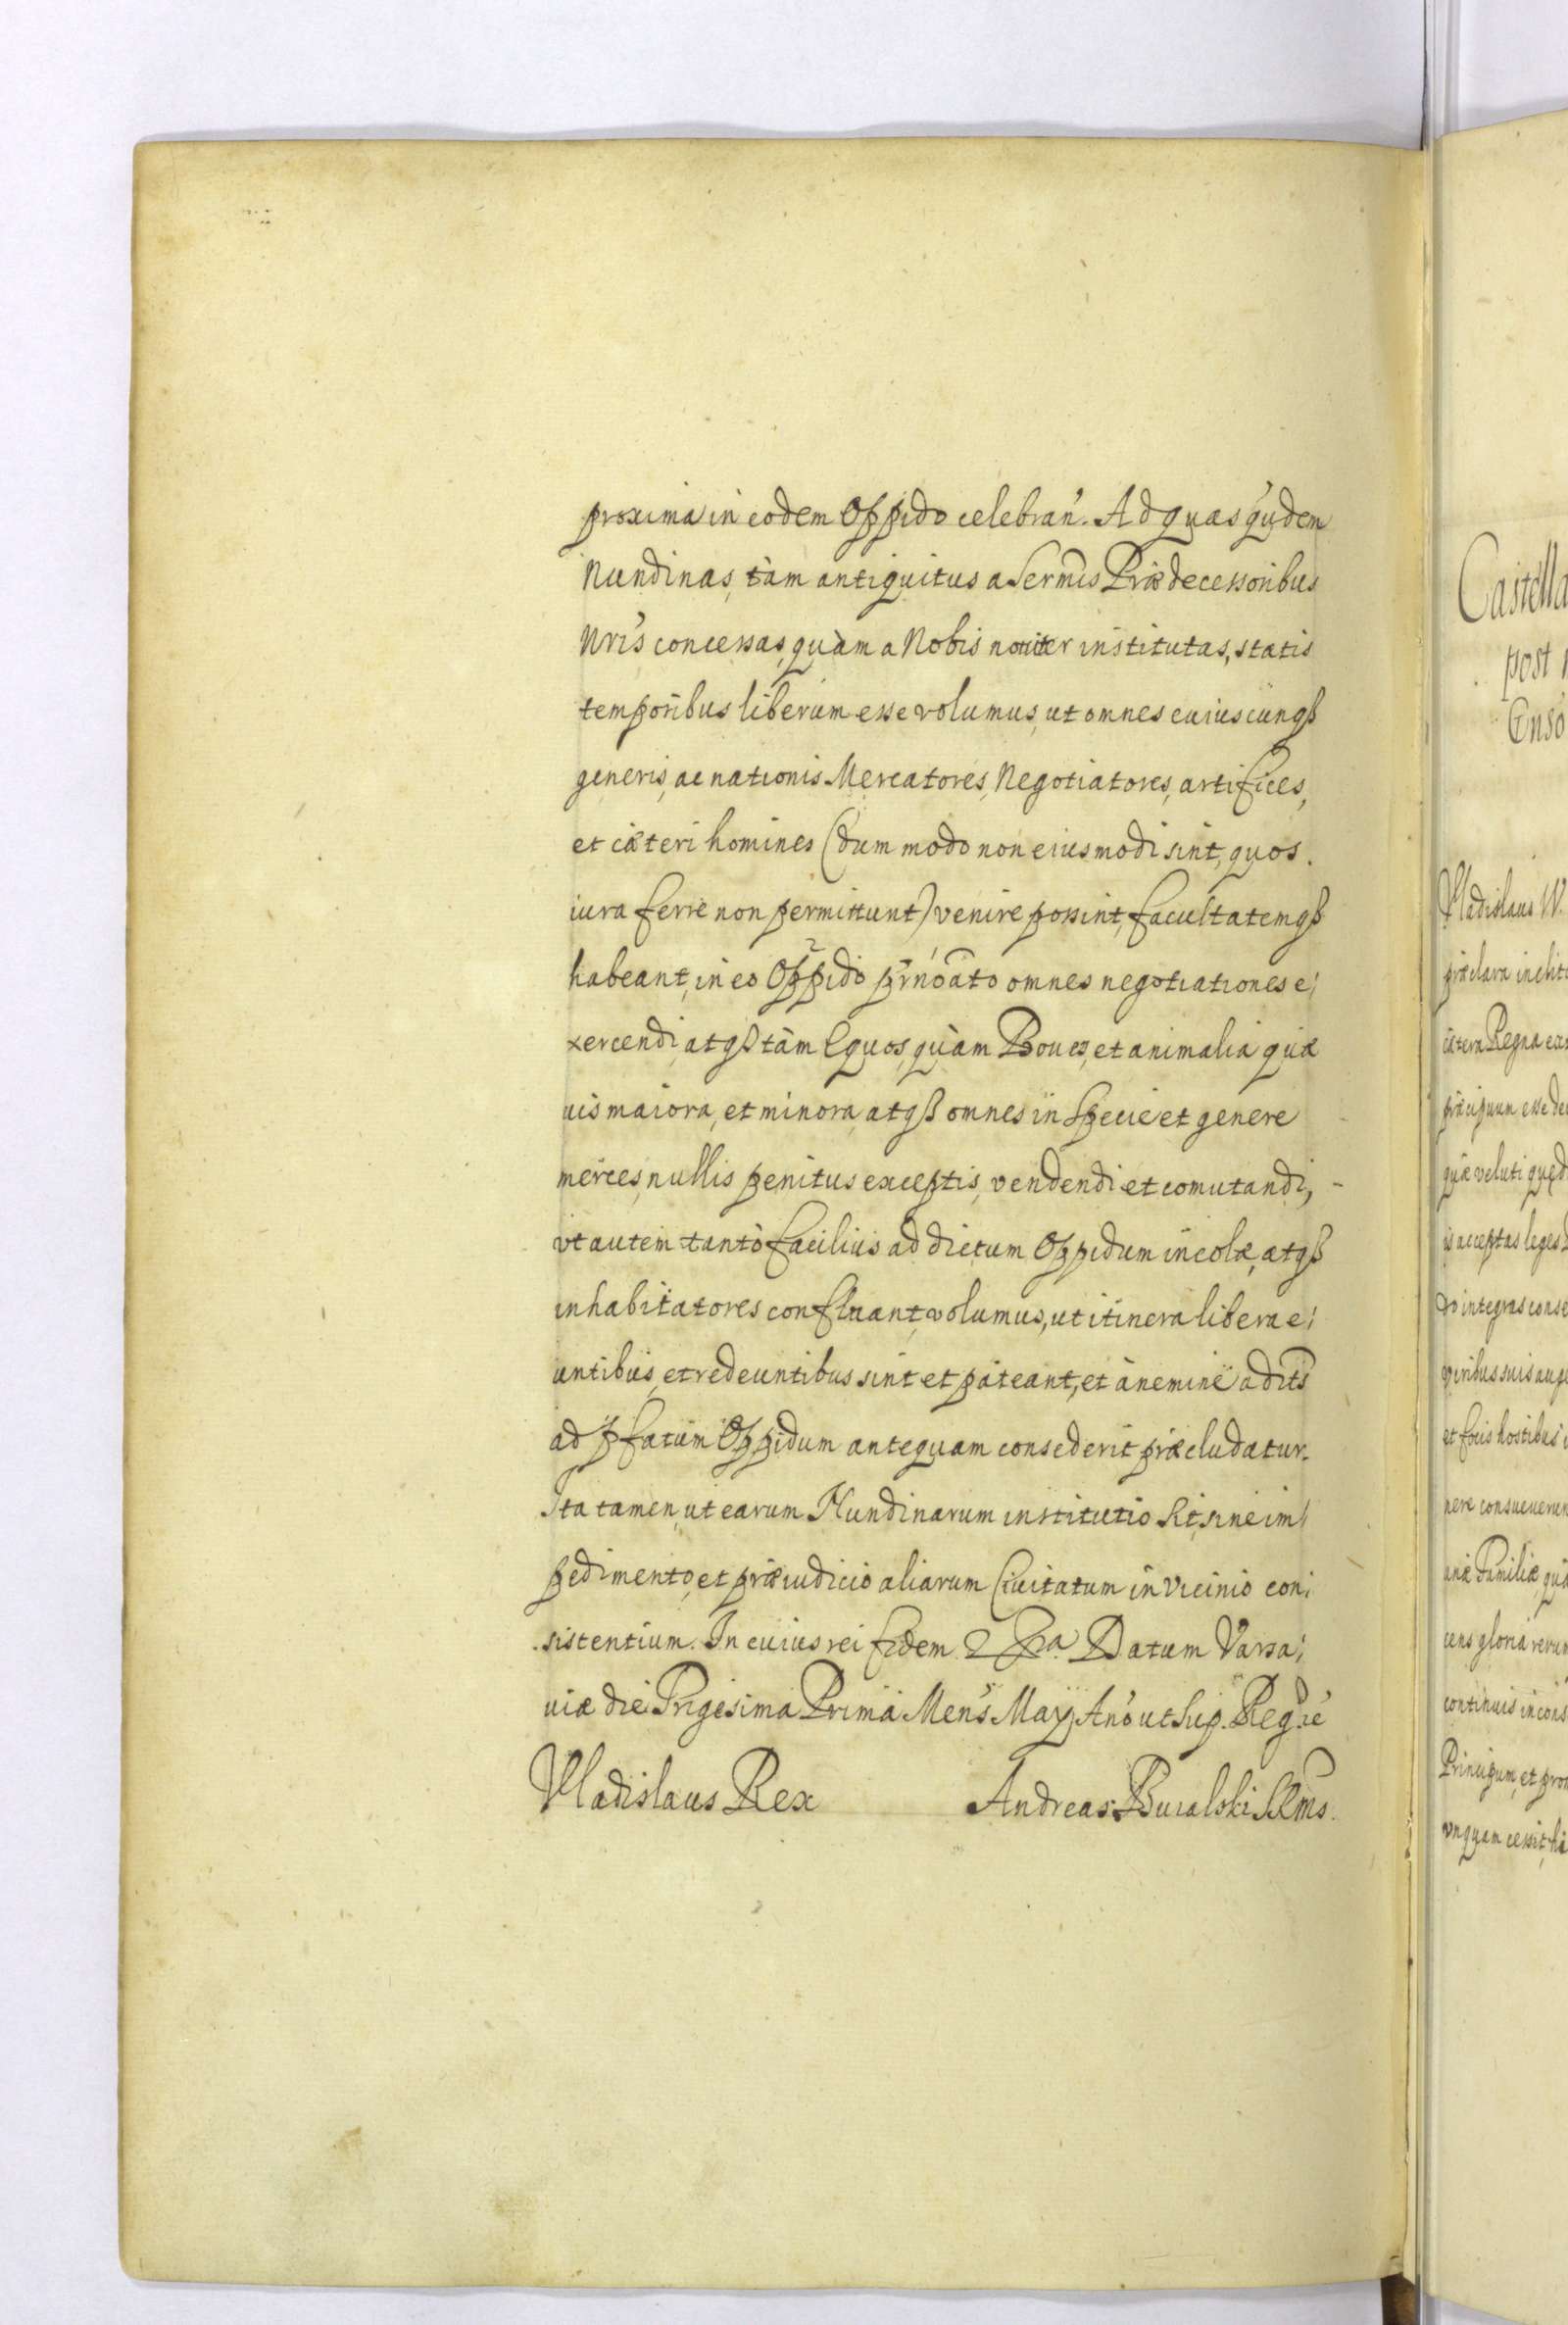 proxima in eodem Oppido celebran̄. Ad quas quidem
Nundinas, tàm antiquitus a Sermis Prædecessoribus
Nris concessas, quàm a Nobis noviter institutas, statis
temporibus liberum esse volumus, ut omnes cuiuscunqꝫ
generis, ac nationis Mercatores, Negotiatores, artifices,
et cæteri homines (dum modo non eiusmodi sint, quos
iura ferre non permittunt) venire possint, facultatemqꝫ
habeant, in eo Oppido prnoato omnes negotiationes e:
xercendi, atqꝫ tàm Equos, quàm Boues, et animalia quæ
uis maiora, et minora, atqꝫ omnes in Specie et genere
merces, nullis penitus exceptis, vendendi et comutandi,
vt autem tantò facilius ad dictum Oppidum incolæ, atqꝫ
inhabitatores confluant, volumus, ut itinera libera e:
untibus, et redeuntibus sint et pateant, et à nemine adits
ad pfatum Oppidum antequam consederit præcludatur.
Ita tamen, ut earum Nundinarum institutio sit, sine im:
pedimento, et præiudicio aliarum Ciuitatum in vicinio con:
sistentium. In cuius rei fidem Datum Varsa:
uiæ die Trigesima Prima Mens May Ano ut Sup. Reg
Vladislaus Rex Andreas SRms.
Castella
post
Vladislaus IV.
præclara inclit
cætera Regna
præcipuum esse de
quæ veluti quæd
is acceptas leges
do integras conse
viribus suis
et focis hostibus
nere consueuerun
anæ Familiæ
cens gloria rerum
continuis in
Principum, et
vnquam cessit,